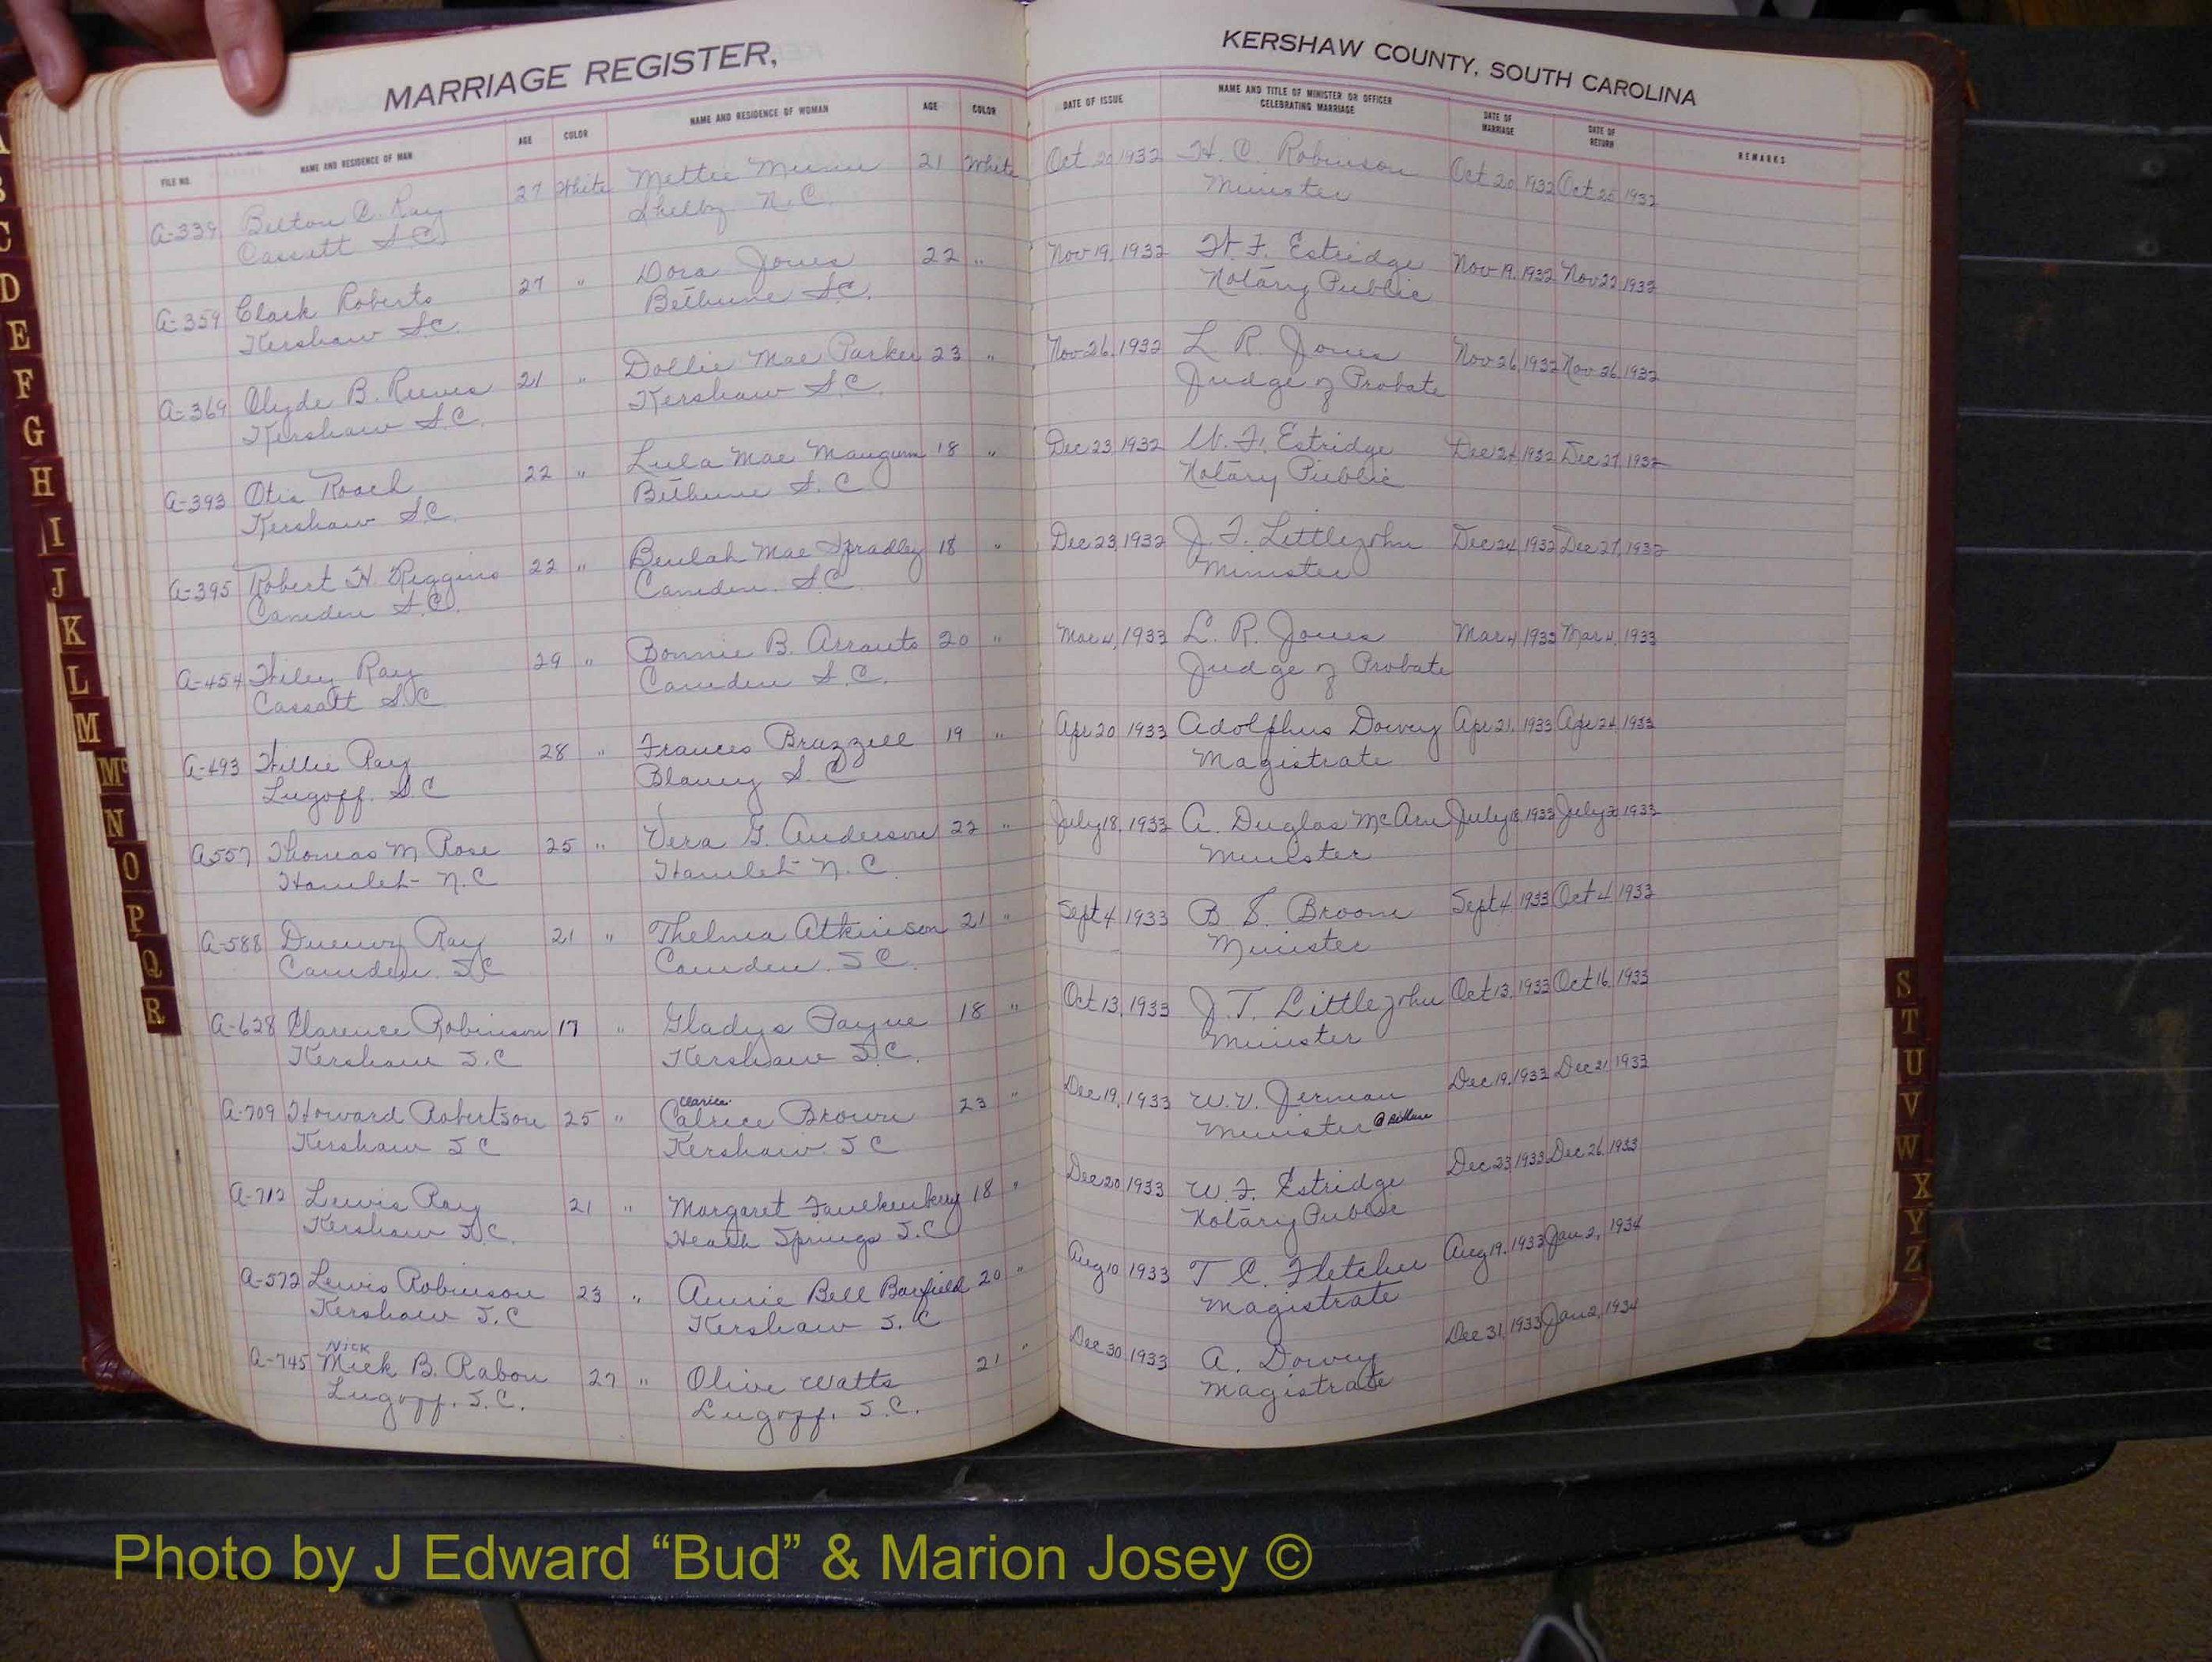 MARRIAGE REGISTER,
KERSHAW COUNTY, SOUTH CAROLINA
FILE NO. NAME AND RESIDENCE OF MAN AGE COLOR NAME AND RESIDENCE OF WOMAN AGE COLOR DATE OF ISSUE NAME AND TITLE OF MINISTER OR OFFICER CELEBRATING MARRIAGE DATE OF MARRIAGE DATE OF RETURN REMARKS
A-339 Belton C. Ray 27 White Mettie 21 White Oct 20 1932 H. C. Robinson Oct 20 1932 Oct 25 1932
Cassett S.C. Shelby N.C. Minister
A-359 Clark Roberts 27 " Dora Jones 22 " Nov 19, 1932 W. F. Estridge Nov 19, 1932 Nov 22 1932
Kershaw S.C. Bethune S.C. Notary Public
A-369 Clyde B. Reeves 21 " Dollie Mae Parker 23 " Nov 26, 1932 L. R. Jones Nov 26, 1932 Nov 26, 1932
Kershaw S.C. Kershaw S.C. Judge of Probate
A-393 Otis Roach 22 " Lula Mae Maugum 18 " Dec 23, 1932 W. F. Estridge Dec 24 1932 Dec 27, 1932
Kershaw S.C. Bethune S.C. Notary Public
A-395 Robert H. Riggins 22 " Beulah Mae Spradley 18 " Dec 23, 1932 J. T. Littlejohn Dec 24, 1932 Dec 27, 1932
Camden S.C. Camden. S.C. Minister
A-454 Wiley Ray 29 " Bonnie B. Arrauts 20 " Mar 4, 1933 L. R. Jones Mar 4 1933 Mar 4, 1933
Cassatt S.C Camden S.C. Judge of Probate
A-493 Willie Ray 28 " Frances Brazzell 19 " Apr 20 1933 Adolphus Dowey Apr 21, 1933 Apr 24, 1933
Lugoff. S.C Blaney S.C Magistrate
A557 Thomas M. Rose 25 " Vera G. Anderson 22 " July 18, 1933 A. Duglas July 18, 1933 July 1933
Hamlet- N.C Hamlet- N.C. Minister
A-588 Ray 21 " Thelma Atkinson 21 " Sept 4 1933 B. S. Broom Sept 4 1933 Oct 4 1933
Camden. S.C Camden. S.C. Minister
A-628 Clarence Robinson 17 " Gladys Payne 18 " Oct 13, 1933 J. T. Littlejohn Oct 13, 1933 Oct 16, 1933
Kershaw S.C Kershaw S.C. Minister
clarice
A-709 Howard Robertson 25 " Calrice Brown 23 " Dec 19, 1933 W. V. Jerman Dec 19, 1933 Dec 21, 1933
Kershaw S C Kershaw. S C Minister @ Bethune
A-712 Lewis Ray 21 " Margaret Faulkenberry 18 " Dec 20 1933 W. F. Estridge Dec 23, 1933 Dec 26, 1933
Kershaw S.C. Heath Springs S.C Notary Public
A-572 Lewis Robinson 23 " Annie Bell Barfield 20 " Aug 10 1933 T C. Fletcher Aug 19. 1933 Jan 2, 1934
Kershaw S.C Kershaw S.C Magistrate
Nick
A-745 Mick B. Rabon 27 " Olive Watts 21 " Dec 30 1933 A. Dowey Dec 31, 1933 Jan 2, 1934
Lugoff. S.C. Lugoff. S.C. Magistrate
C
D
E
F
G
H
I
J
K
L
M
Mc
N
O
P
Q
R
S
T
U
V
W
X
Y
Z
Photo by J Edward “Bud” & Marion Josey ©